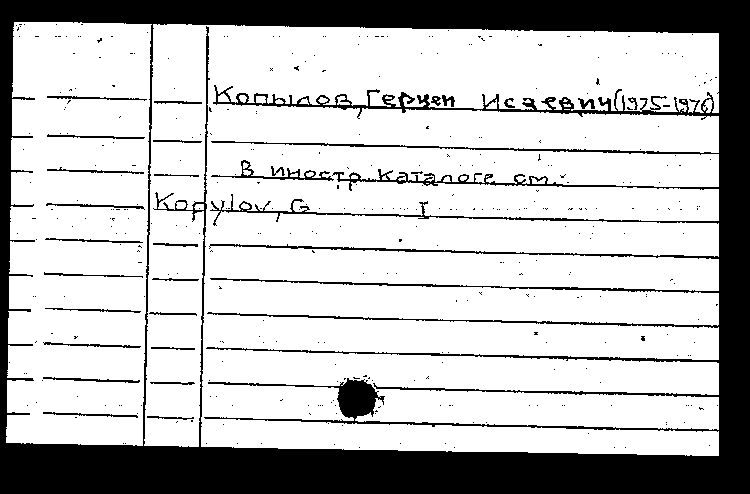 Копылов, Герцен Исаевич (1925-1976)
В иностр. каталоге см.:
Kopylov, G I